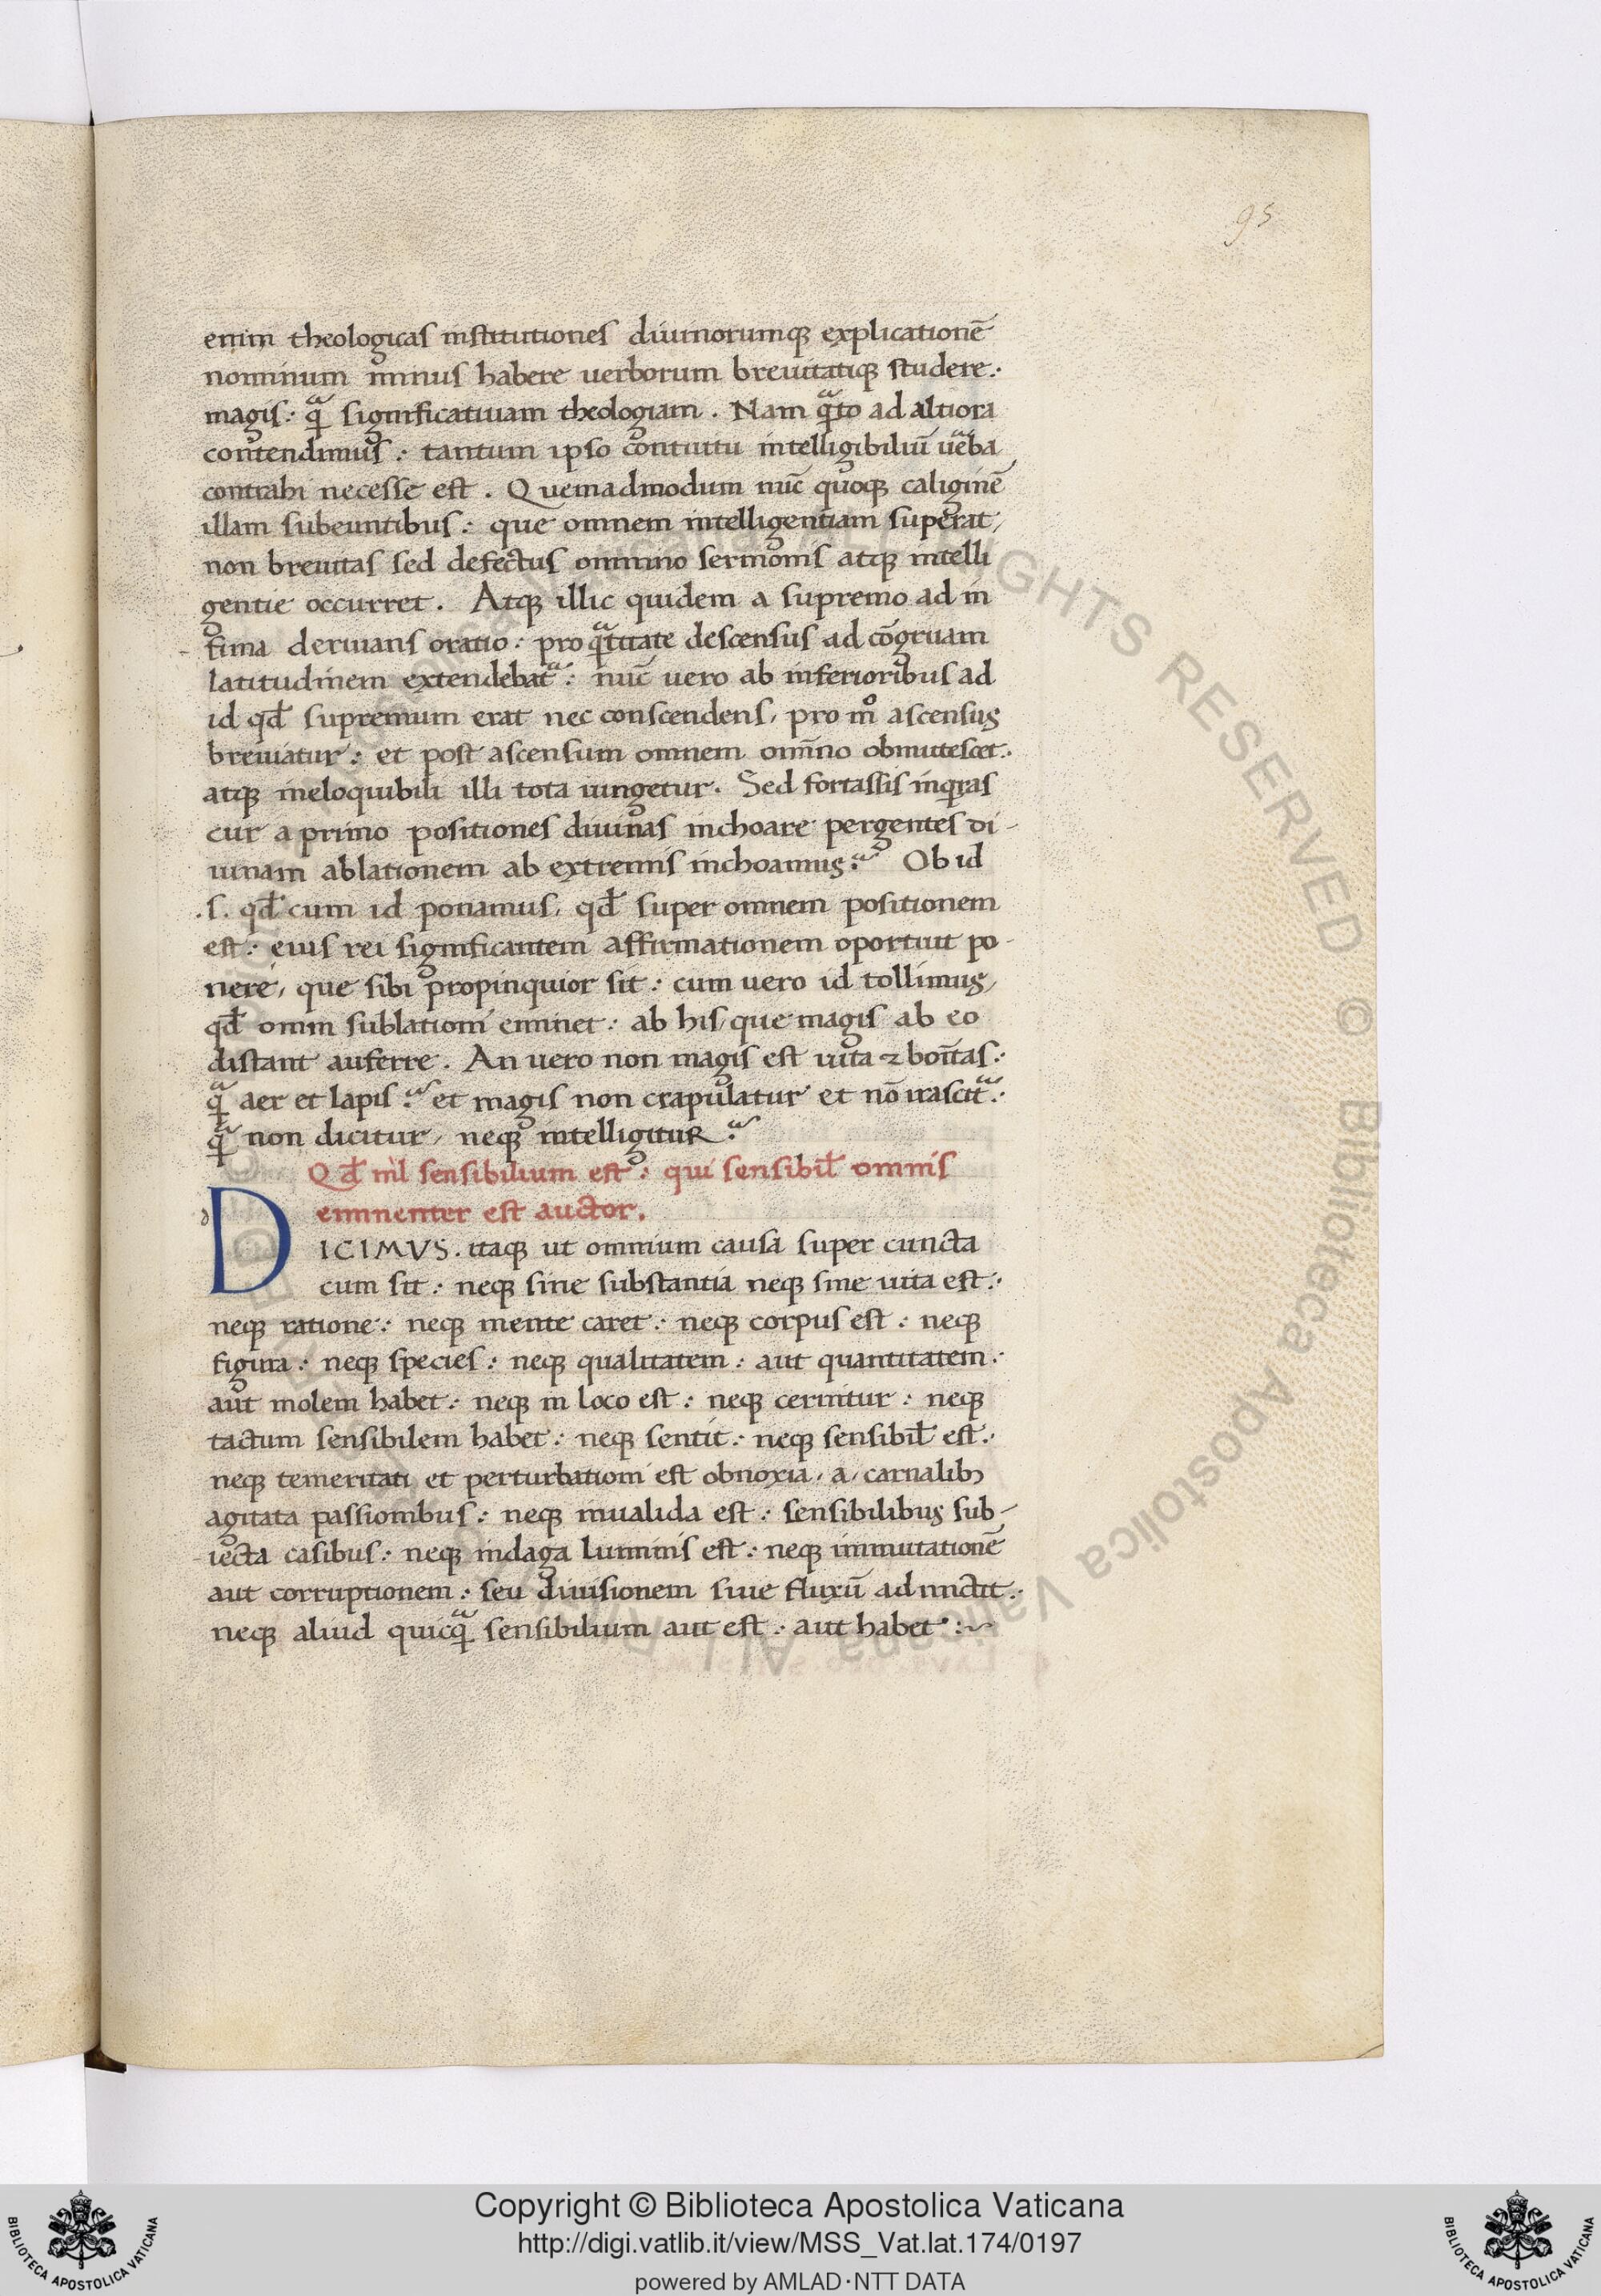 95
enim theologicas institutiones diuinorumqꝫ explicationē
nominum minus habere uerborum breuitatiqꝫ studere:·
magis: qᷓ significatiuam theologiam. Nam qᷓto ad altiora
contendimus: tantum ipso contuitu intelligibiliū uerba
contrahi necesse est. Quemadmodum nūc quoqꝫ caliginē
illam subeuntibus: que omnem intelligentiam superat,
non breuitas sed defectus omnino sermonis atqꝫ intelli
gentie occurret. Atqꝫ illic quidem a supremo ad in
fima deriuans oratio: pro qᷓtitate descensus ad cōgruam
latitudinem extendebatᷓ: nūc vero ab inferioribus ad
id qđ supremum erat nec conscendens, pro mͦ ascensus
breuiatur: et post ascensum omnem omīno obmutescet:·
atqꝫ ineloquibili illi tota iungetur. Sed fortassis inqͥras
cur a primo positiones diuinas inchoare pergentes di-
uinam ablationem ab extremis inchoamus? Ob id
.s. qđ cum id ponamus, qđ super omnem positionem
est: eius rei significantem affirmationem oportuit po-
nere, que sibi propinquior sit: cum uero id tollimus,
qđ omni sublationi eminet: ab his, que magis ab eo
distant auferre. An uero non magis est uita ⁊ boītas:·
qᷓ aer et lapis? et magis non crapulatur et nō irascitᷓ:·
qᷓ non dicitur, neqꝫ intelligitur?
Qđ nil sensibilium est: qui sensibil̄ omnis
eminenter est auctor.
d
DICIMVS. itaqꝫ ut omnium causa super cuncta
cum sit: neqꝫ sine substantia neqꝫ sine uita est:·
neqꝫ ratione: neqꝫ mente caret: neqꝫ corpus est: neqꝫ
figura: neqꝫ species: neqꝫ qualitatem: aut quantitatem:·
aut molem habet: neqꝫ in loco est: neqꝫ cernitur: neqꝫ
tactum sensibilem habet: neqꝫ sentit: neqꝫ sensibil̄ est:·
neqꝫ temeritati et perturbationi est obnoxia, a, carnalibꝫ
agitata passionibus: neqꝫ inualida est: sensibilibus sub-
iecta casibus: neqꝫ indaga luminis est: neqꝫ immutationē
aut corruptionem: seu diuisionem siue fluxū admictit:·
neqꝫ aliud quicqᷓ sensibilium aut est: aut habet:~
Biblioteca Apostolica Vaticana ALL RIGHTS RESERVED ©
Copyright © Biblioteca Apostolica Vaticana
http://digi.vatlib.it/view/MSS_Vat.lat.174/0197
powered by AMLAD·NTT DATA
BIBLIOTECA APOSTOLICA VATICANA
BIBLIOTECA APOSTOLICA VATICANA